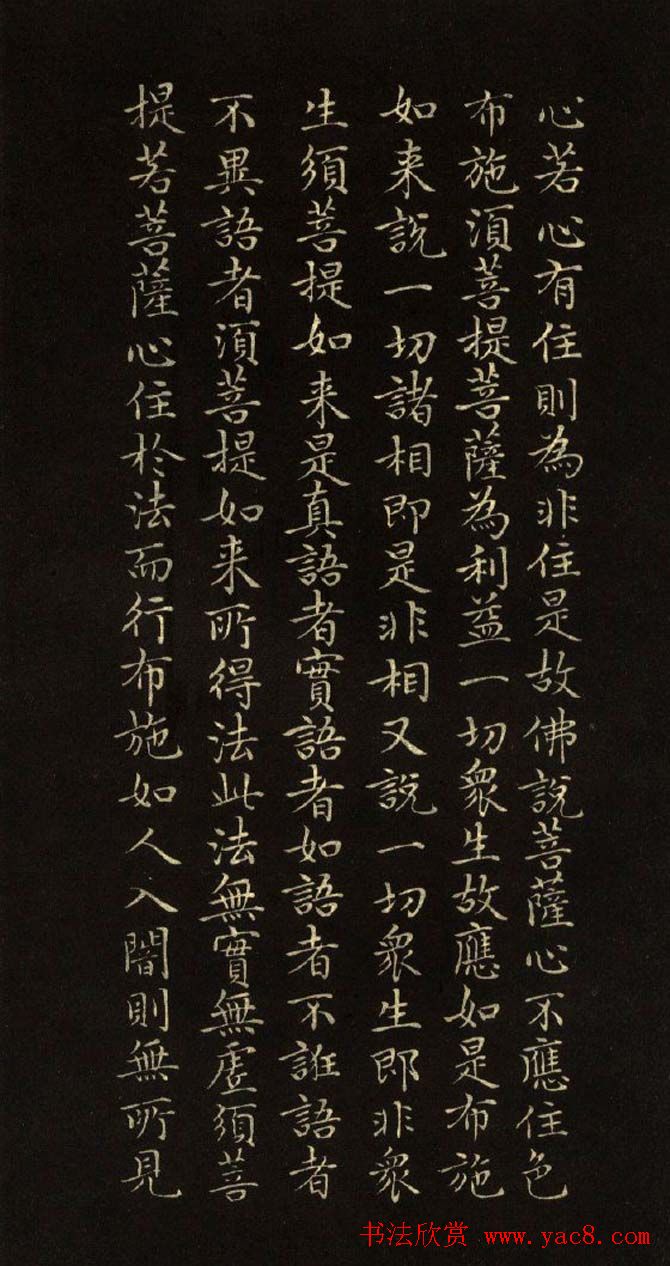 心若心有住則為非住是故佛說菩薩心不應住色
布施須菩提菩薩為利益一切眾生故應如是布施
如来說一切諸相即是非相又說一切眾生即非眾
生須菩提如来是真語者實語者如語者不誑語者
不異語者須菩提如来所得法此法無實無虛須菩
提若菩薩心住於法而行布施如人入闇則無所見
书法欣赏 www.yac8.com